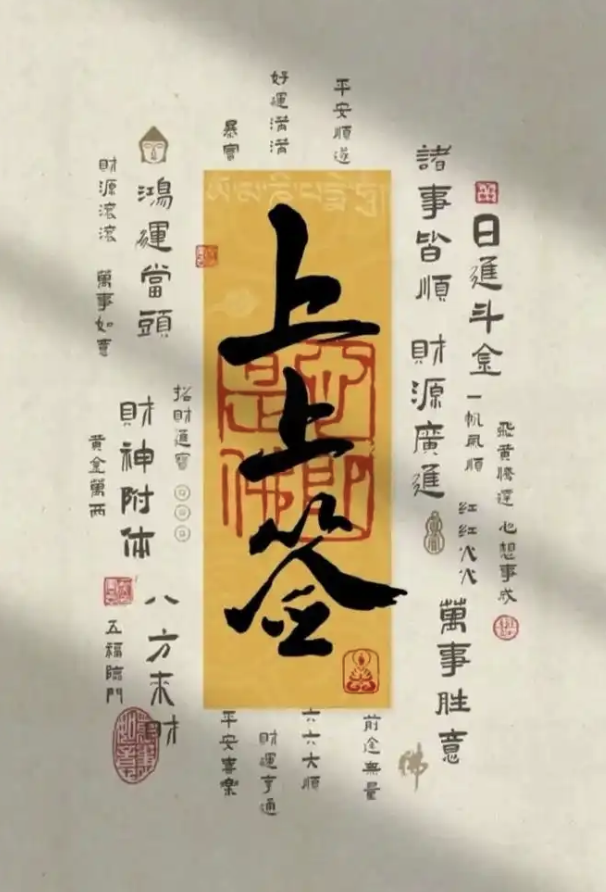 日進斗金
諸事皆順
財源廣進
一帆風順
飛黄騰達
心想事成
紅紅火火
萬事胜意
平安順遂
好運满满
暴富
上上簽
鴻運當頭
財源滚滚
萬事如意
招財進寶
財神附体
黄金萬两
八方来財
五福臨門
前途無量
六六大順
財運亨通
平安喜樂
佛